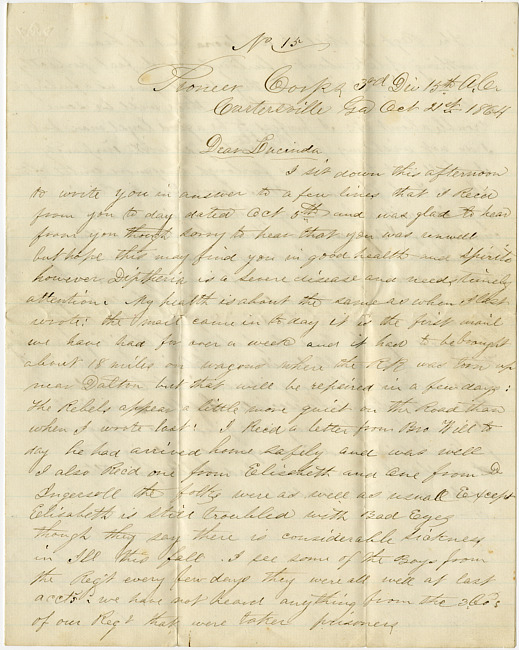 No 15
Pioneer Corps 3rd Div 15th A.C.
Cartersville Ga Oct 21st 1864
Dear Lucinda
I sit down this afternoon
to write you in answer to a few lines that I Recd
from you to day dated Oct 5th and was glad to hear
from you though sorry to hear that you was unwell
but hope this may find you in good health and spirits
however Diptheria is a severe disease and needs timely
attention My health is about the same as when I last
wrote: the mail came in to day it is the first mail
we have had for over a week and it had to be brought
about 18 miles on wagons where the RR was torn up
near Dalton but that will be repaired in a few days:
the Rebels appear a little more quiet on the Road than
when I wrote last! I Recd a letter from Bro Will to
day he had arrived home safely and was well
I also Recd one from Elisabeth and one from
Ingersoll the folks were as well as usuall Except
Elisabeth is still troubled with Bad Eyes
though they say there is considerable sickness
in Ill this fall. I see some of the Boys from
the Regt every few days they were all well at last
acct's: we have not heard anything from the 3 Co's
of our Regt that were taken prisoners